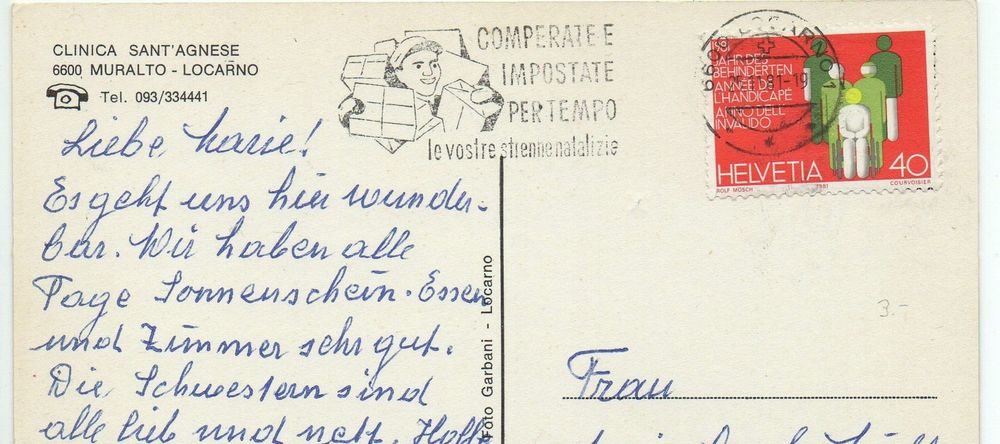 CLINICA SANT'AGNESE
6600 MURALTO - LOCARNO
Tel. 093/334441
Liebe Marie!
Es geht uns hier wunder-
bar. Wir haben alle
Tage Sonnenschein. Essen
und Zimmer sehr gut.
Die Schwestern sind
alle lieb und nett. Hoffe
Foto Garbani - Locarno
COMPERATE E
IMPOSTATE
PER TEMPO
le vostre strenne natalizie
6600 LOCARNO 1
JAHR DES
BEHINDERTEN
ANNÉE DE
L'HANDICAPÉ
ANNO DELL'
INVALIDO
HELVETIA 40
ROLF MÖSCH 1981 COURVOISIER
3.-
Frau